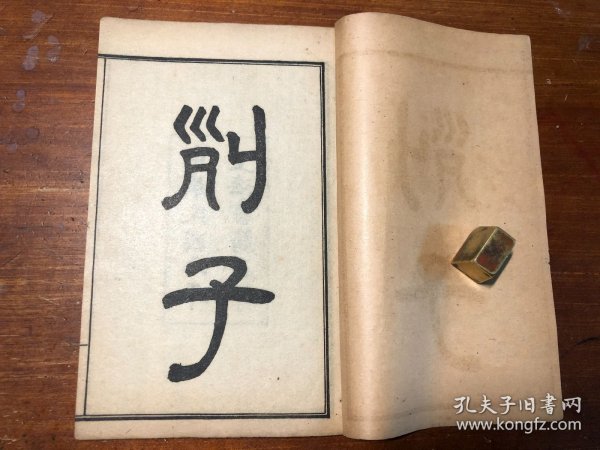 列
子
孔夫子旧书网
www.kongfz.com